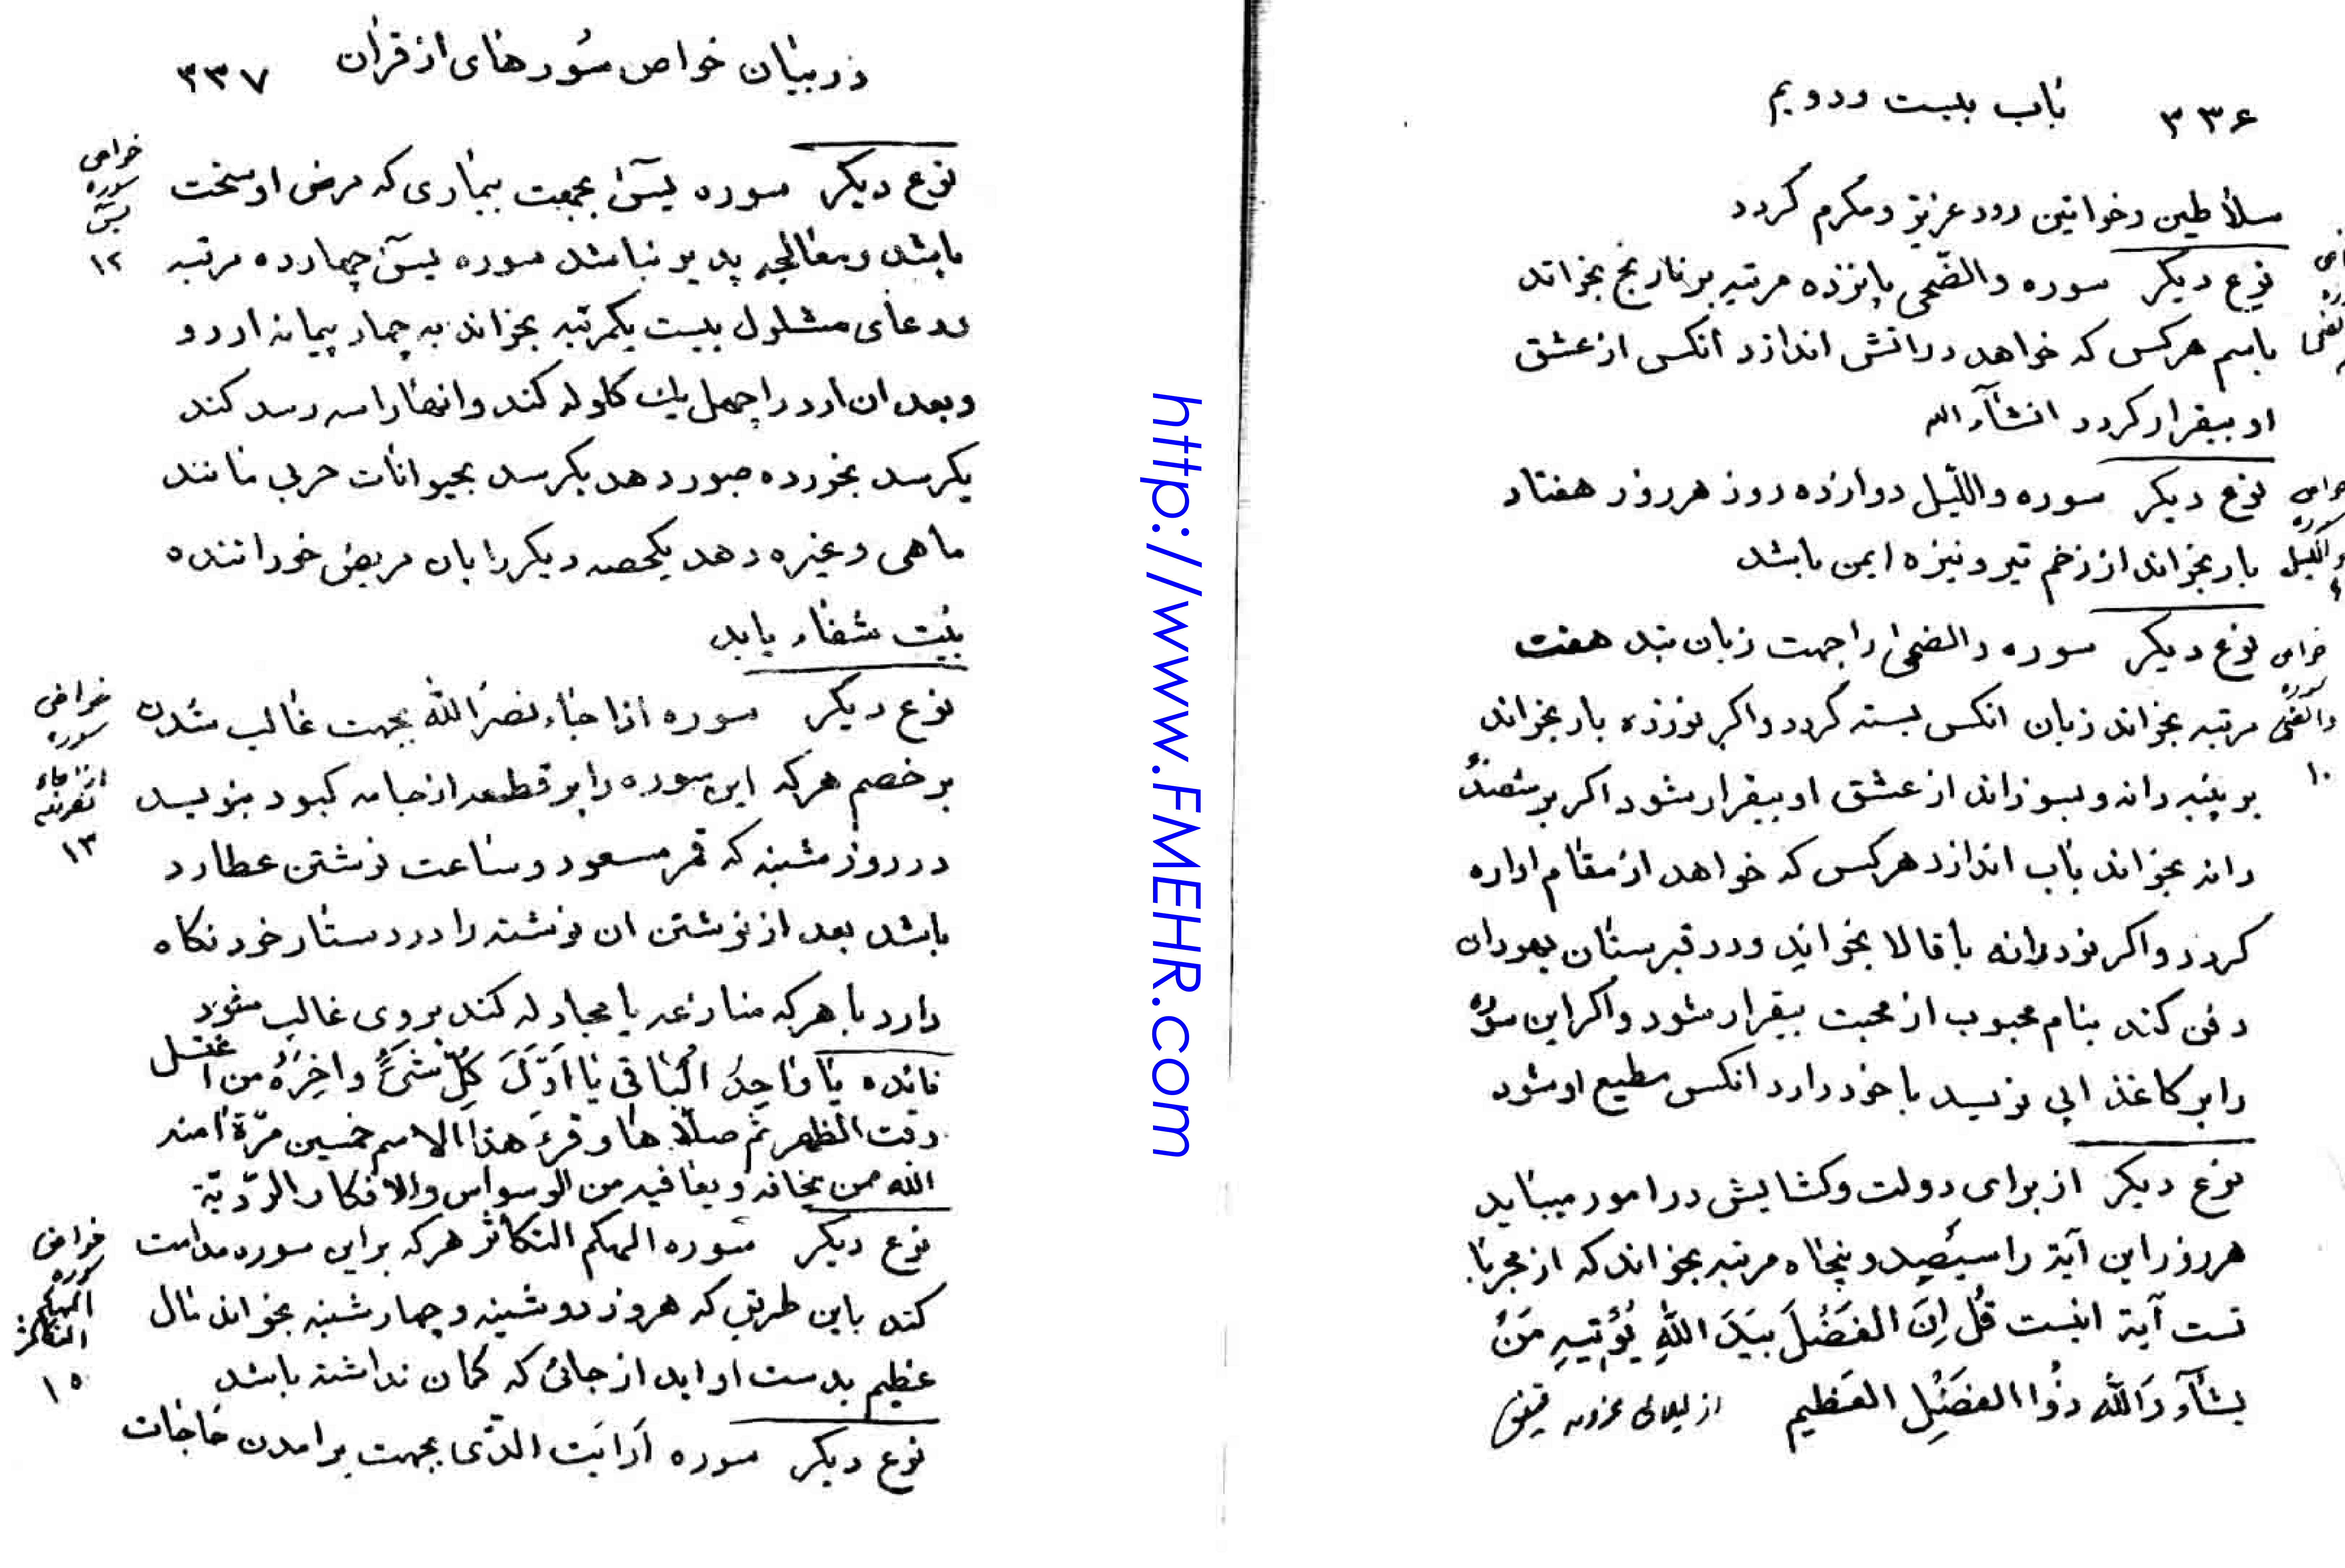 ۳۳۶ باب بیست ودویم
سلاطین وخواتین رود عزیز ومکرم کردد
نوع دیکر سوره والضّحی پانزده مرتبه بر نارنج بخواند
باسم هرکس که خواهد دراتش اندازد انکس از عشق
او بیقرار کردد انشآء الله
نوع دیکر سوره واللّیل دوازده روز هرروز هفتاد
بار بخواند از زخم تیر ونیزه ایمن باشد
نوع دیکر سوره والضحی را جهت زبان بند هفت
مرتبه بخواند زبان انکس بسته کردد واکر نوزده بار بخواند
بر پنبه دانه وبسوزاند از عشق او بیقرار شود اکر بر
دانه بخواند باب اندازد هرکس که خواهد از مقام اواره
کردد واکر نود دانه باقالا بخواند ودر قبرستان یهودان
دفن کند بنام محبوب از محبت بیقرار شود واکر این سوره
را بر کاغذ ابی نویسد با خود دارد انکس مطیع او شود
نوع دیکر از برای دولت وکشایش در امور میباید
هرروز این آیة را سیصد وپنجاه مرتبه بخواند که از مجربا
تست آیة اینست قُل اِنَ الفَضْلَ بیَدَ اللّهِ یُؤتیهِ مَنْ
یشآء وَاللّه ذُوا الفَضْلِ العَظیم
خواص
سوره
واللّیل
خواص
سوره
والضحی
۱۰
در بیان خواص سُورهای از قران ۳۳۷
نوع دیکر سوره یسٓ بجهت بیماری که مرض او سخت
باشد ومعالجه پدیر نباشد سوره یسٓ چهارده مرتبه
ودعای مشلول بیست یکمرتبه بخواند به چهار پیمانه ارد و
وبعد ان ارد را چهل یك کلوله کند وانها را سه رسد کند
یکرسد بخورده جبور دهد یکرسد بحیوانات حربی مانند
ماهی وغیره دهد یکحصه دیکر را بان مریض خوراننده
بنیت شفاء یابد
نوع دیکر سوره اذا جاء نصْرَ اللّه بجهت غالب شدن
بر خصم هرکه این سوره را بر قطعه از جامه کبود بنویسد
در روز شنبه که قمر مسعود وساعت نوشتن عطارد
باشد بعد از نوشتن ان نوشته را در دستار خود نکاه
دارد با هرکه منازعه یا مجادله کند بروی غالب شود
فائده یا واحِدُ الْباقی یا اَوَّلَ کِلّ شَیْءٍ واخِرَهُ من اغتسل
وقت الظهر ثم صلّاها وقرءَ هذا الاسم خمسین مرّة امنه
اللّه ممن یخافه ویعافیه من الوسواس والافکار الردّیة
نوع دیکر سوره الهیکم التکاثر هرکه براین سوره مداومت
کند باین طریق که هروز دوشنبه وچهارشنبه بخواند مال
عظیم بدست او اید از جائی که کمان نداشته باشد
نوع دیکر سوره اَرَایَت الذّی بجهت برامدن حاجات
خواص
سوره
یسٓ
۱۲
خواص
سوره
اذا جاء
نصرالله
۱۳
خواص
سوره
الهیکم
التکاثر
۱۵
http://www.FMEHR.com